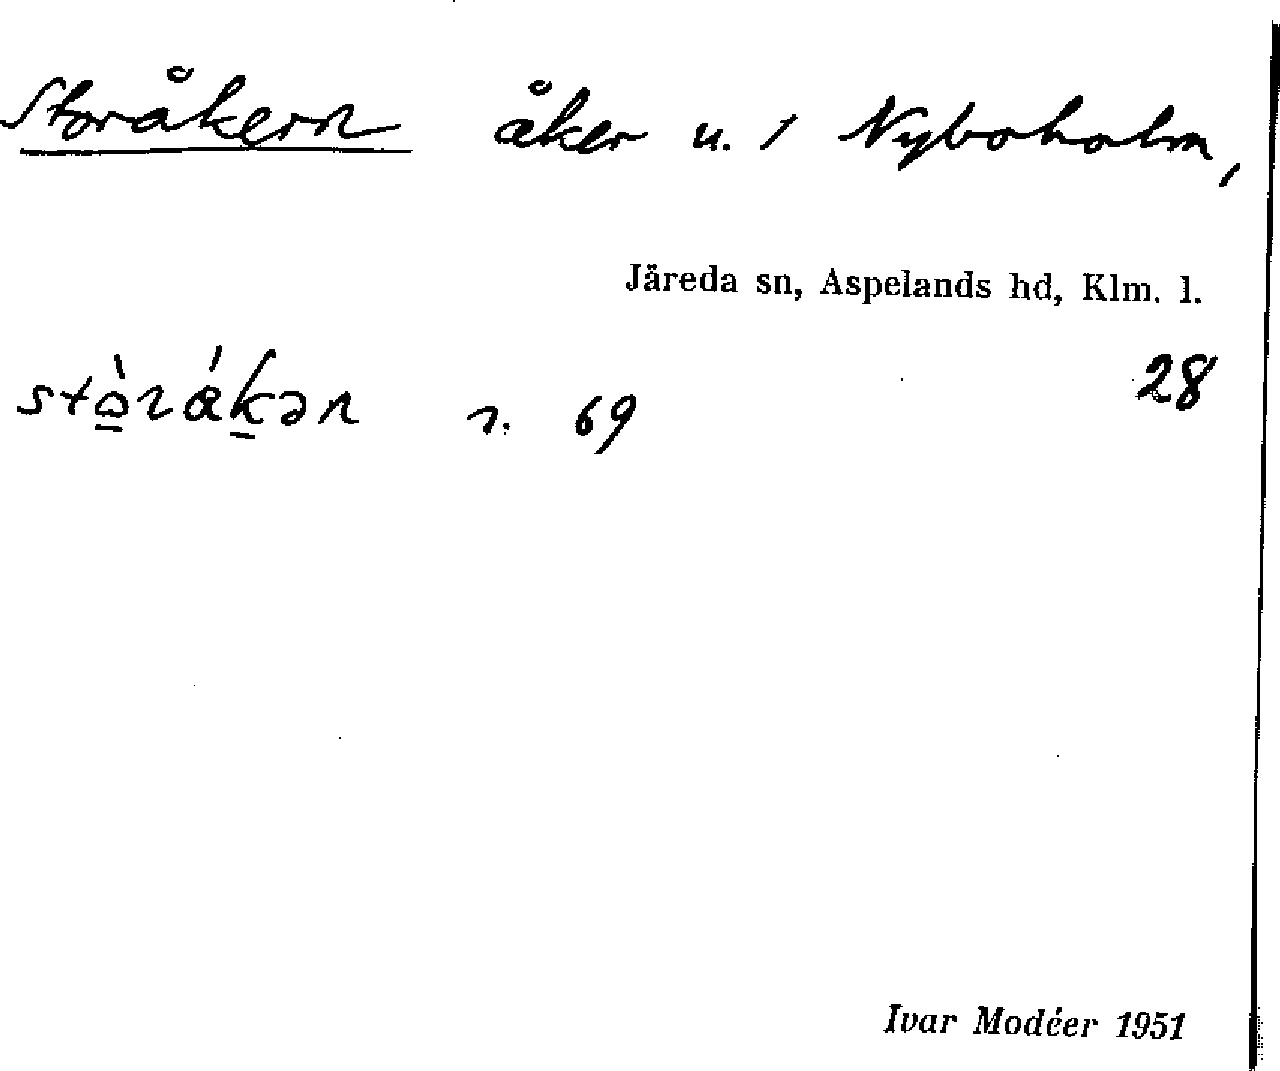 Storåkern åker u. 1 Nyboholm,
Järeda sn, Aspelands hd, Klm. l.
28
stò̱rákən r. 69
Ivar Modéer 1951